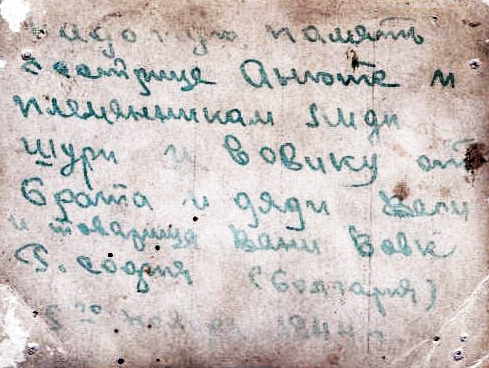 На долгую память
Сестрице Анюте и
племянникам Лиди
Шури и Вовику от
брата и дяди Васи
и товарища Вани Вовк
Г. София (Болгария)
5го ноября 1944 г.